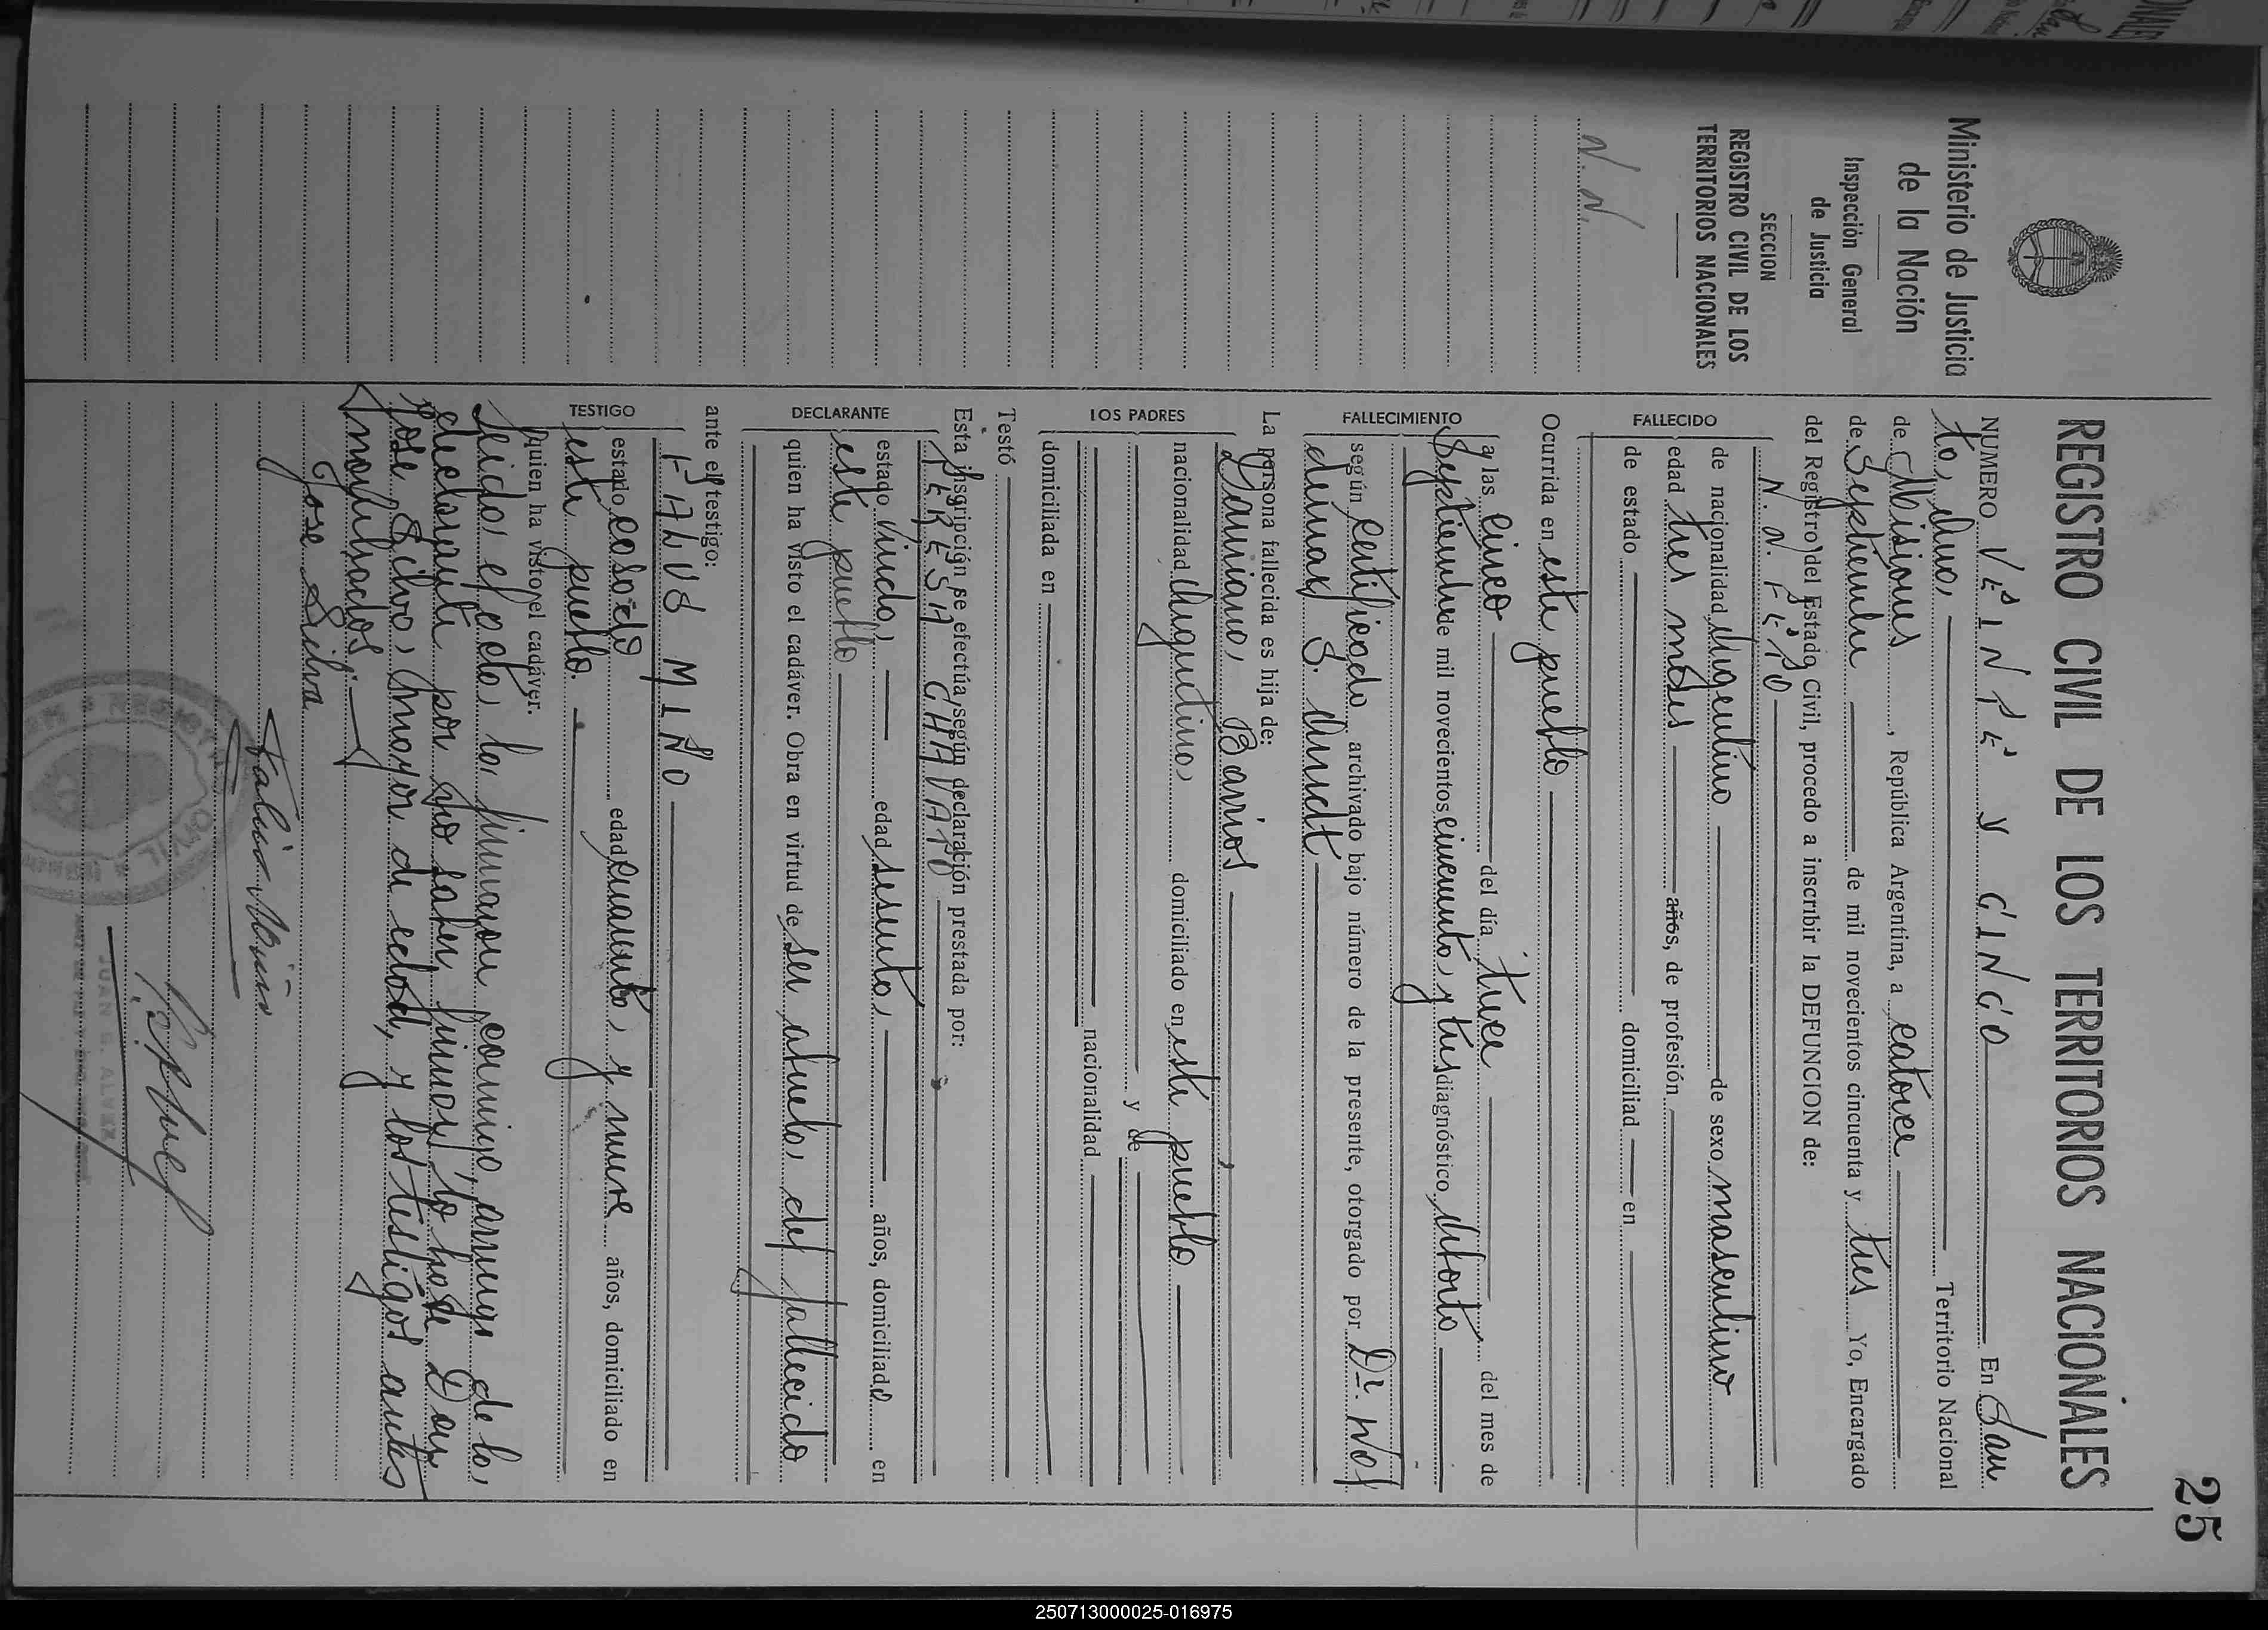 25
REGISTRO CIVIL DE LOS TERRITORIOS NACIONALES
Ministerio de Justicia
de la Nación
Inspección General
de Justicia
SECCION
REGISTRO CIVIL DE LOS
TERRITORIOS NACIONALES
N. N.
NUMERO VEINTE Y CINCO En San
to, Ana, Territorio Nacional
de Misiones, República Argentina, a catorce
de Septiembre de mil novecientos cincuenta y tres Yo, Encargado
del Registro del Estado Civil, procedo a inscribir la DEFUNCION de:
FALLECIDO
N. N. FETO
de nacionalidad Argentino de sexo masculino
edad tres meses años, de profesión
de estado domiciliad en
Ocurrida en este pueblo
FALLECIMIENTO
a las cinco del día trece del mes de
Septiembre de mil novecientos cincuenta y tres diagnóstico, Aborto
según certificado archivado bajo número de la presente, otorgado por Dr. Wol
demar S. Arndt
La persona fallecida es hija de:
LOS PADRES
Damiana Barrios
nacionalidad Argentina, domiciliado en este pueblo
y de
nacionalidad
domiciliada en
Testó
Esta inscripción se efectúa según declaración prestada por:
DECLARANTE
TERESA
estado viuda, edad sesenta, años, domiciliada en
este pueblo
quien ha visto el cadáver. Obra en virtud de ser abuela del fallecido
ante el testigo:
TESTIGO
FALUS MIÑO
estado casado edad cuarenta y nueve años, domiciliado en
este pueblo.
Quien ha visto el cadáver.
Leída el acta la firmaron conmigo, a ruego de la
declarante por no saber firmar lo hace Don
José Silva, mayor de edad, y los testigos antes
Jose Silva
250713000025-016975